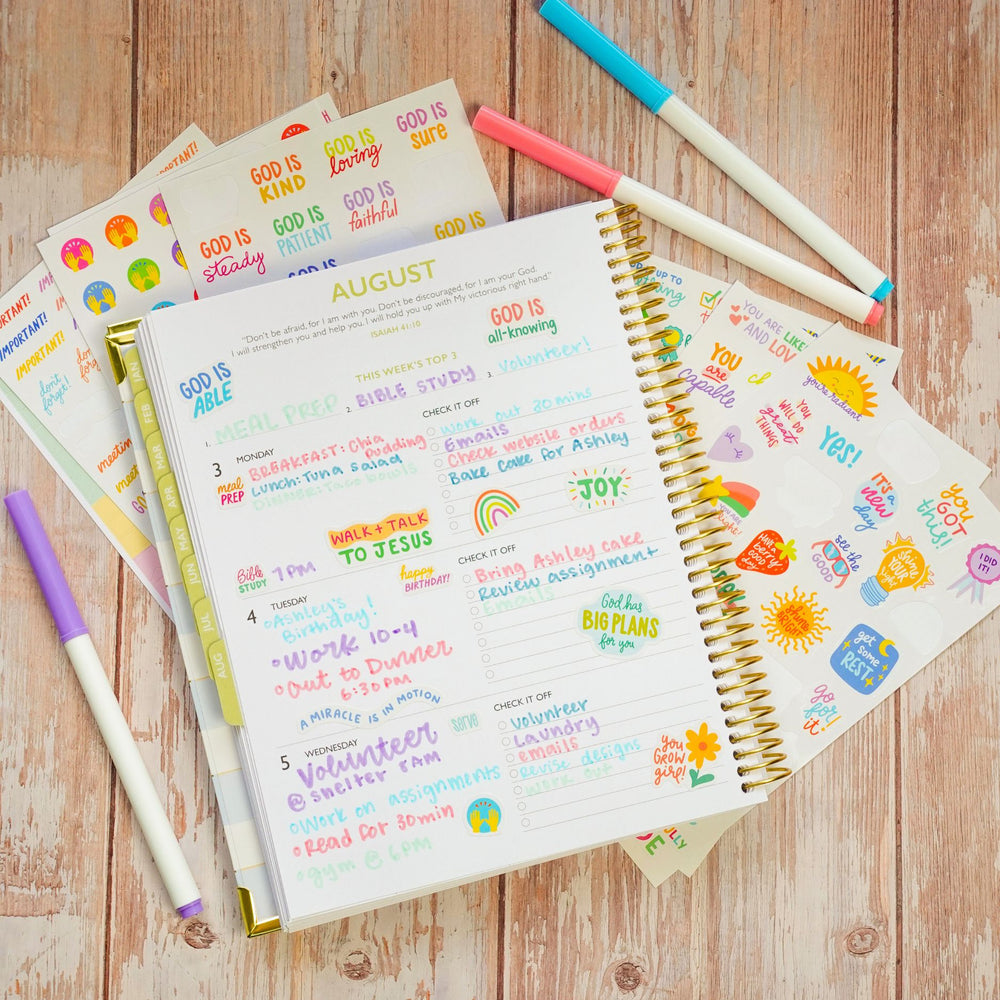 AUGUST
"Don't be afraid, for I am with you. Don't be discouraged, for I am your God.
I will strengthen you and help you. I will hold you up with My victorious right hand."
ISAIAH 41:10
GOD IS
all-knowing
GOD IS
ABLE
THIS WEEK'S TOP 3
1. MEAL PREP
2. BIBLE STUDY
3. Volunteer!
3 MONDAY
meal
PREP
BREAKFAST: Chia
Pudding
Lunch: Tuna salad
DINNER: Taco bowls
WALK + TALK
TO JESUS
Bible
STUDY
7 PM
happy
BIRTHDAY!
CHECK IT OFF
Work out 30 mins
Emails
Check website orders
Bake cake for Ashley
JOY
4 TUESDAY
Ashley's
Birthday!
Work 10-4
Out to Dinner
6:30 PM
A MIRACLE IS IN MOTION
CHECK IT OFF
Bring Ashley cake
Review assignment
Emails
God has
BIG PLANS
for you
5 WEDNESDAY
serve
Volunteer
@ shelter 8AM
Work on assignments
Read for 30 min
gym @ 6PM
CHECK IT OFF
Volunteer
Laundry
emails
Revise designs
Work out
you
GROW
girl!
JAN
FEB
MAR
APR
MAY
JUN
JUL
AUG
GOD IS
KIND
GOD IS
loving
GOD IS
sure
GOD IS
steady
GOD IS
PATIENT
GOD IS
faithful
GOD IS
GOD IS
IMPORTANT!
IMPORTANT!
IMPORTANT!
don't
forget!
meeting
YOU ARE
LIKE
AND LOV
YOU
are
capable
you're radiant
YOU
WILL DO
great
THINGS
YES!
IT'S A
new
DAY
YOU
GOT
this!
I DID
IT!
HAVE A
berry
GOOD
DAY
see the
GOOD
shine
YOUR
light
Shine
BRIGHT
get
some
REST
go
for
it!